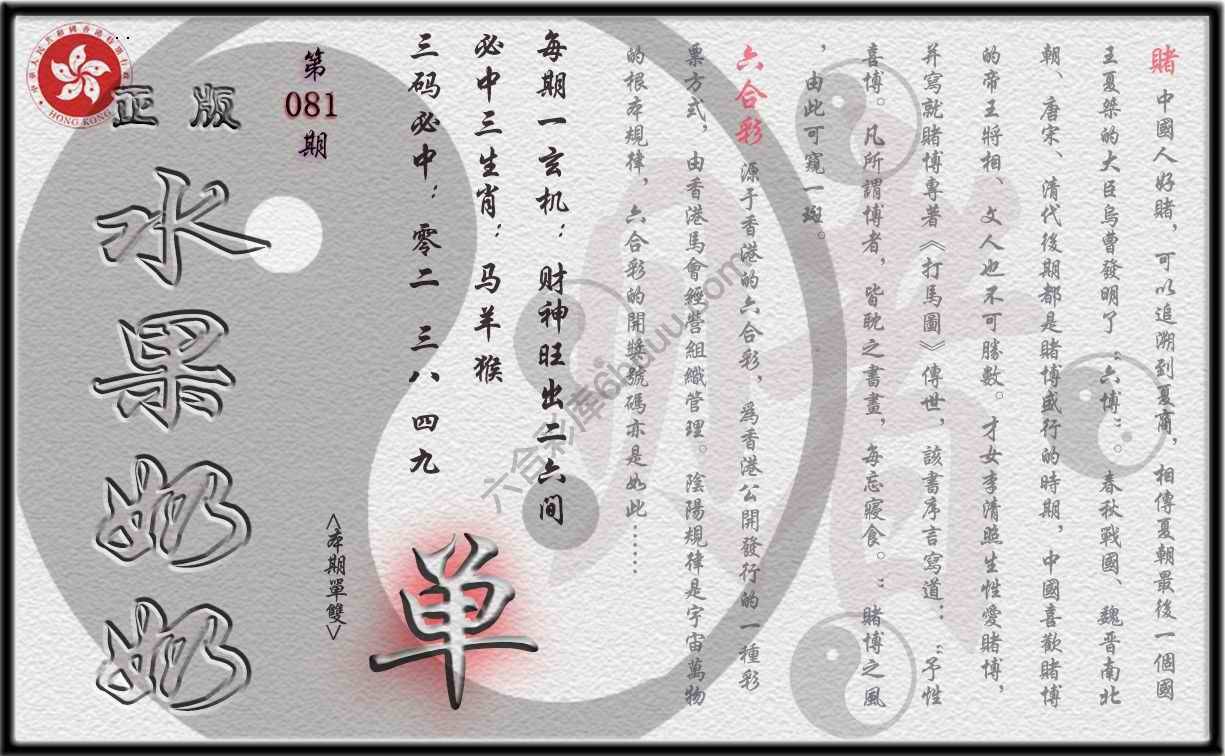 賭 中國人好賭，可以追溯到夏商，相傳夏朝最後一個國
王夏桀的大臣烏曹發明了“六博”。春秋戰國、魏晋南北
朝、唐宋、清代後期都是賭博盛行的時期，中國喜歡賭博
的帝王將相、文人也不可勝數。才女李清照生性愛賭博，
并寫就賭博專著《打馬圖》傳世，該書序言寫道：“予性
喜博。凡所謂博者，皆耽之書畫，每忘寢食。”賭博之風
，由此可窺一斑。
六合彩 源于香港的六合彩，爲香港公開發行的一種彩
票方式，由香港馬會經營組織管理。陰陽規律是宇宙萬物
的根本規律，六合彩的開獎號碼亦是如此……
每期一玄机：财神旺出二六间
必中三生肖：马羊猴
三码必中：零二 三八 四九
单
<本期單雙>
第
081
期
正版
水果奶奶
六合彩库6hduu.com
HONG KONG